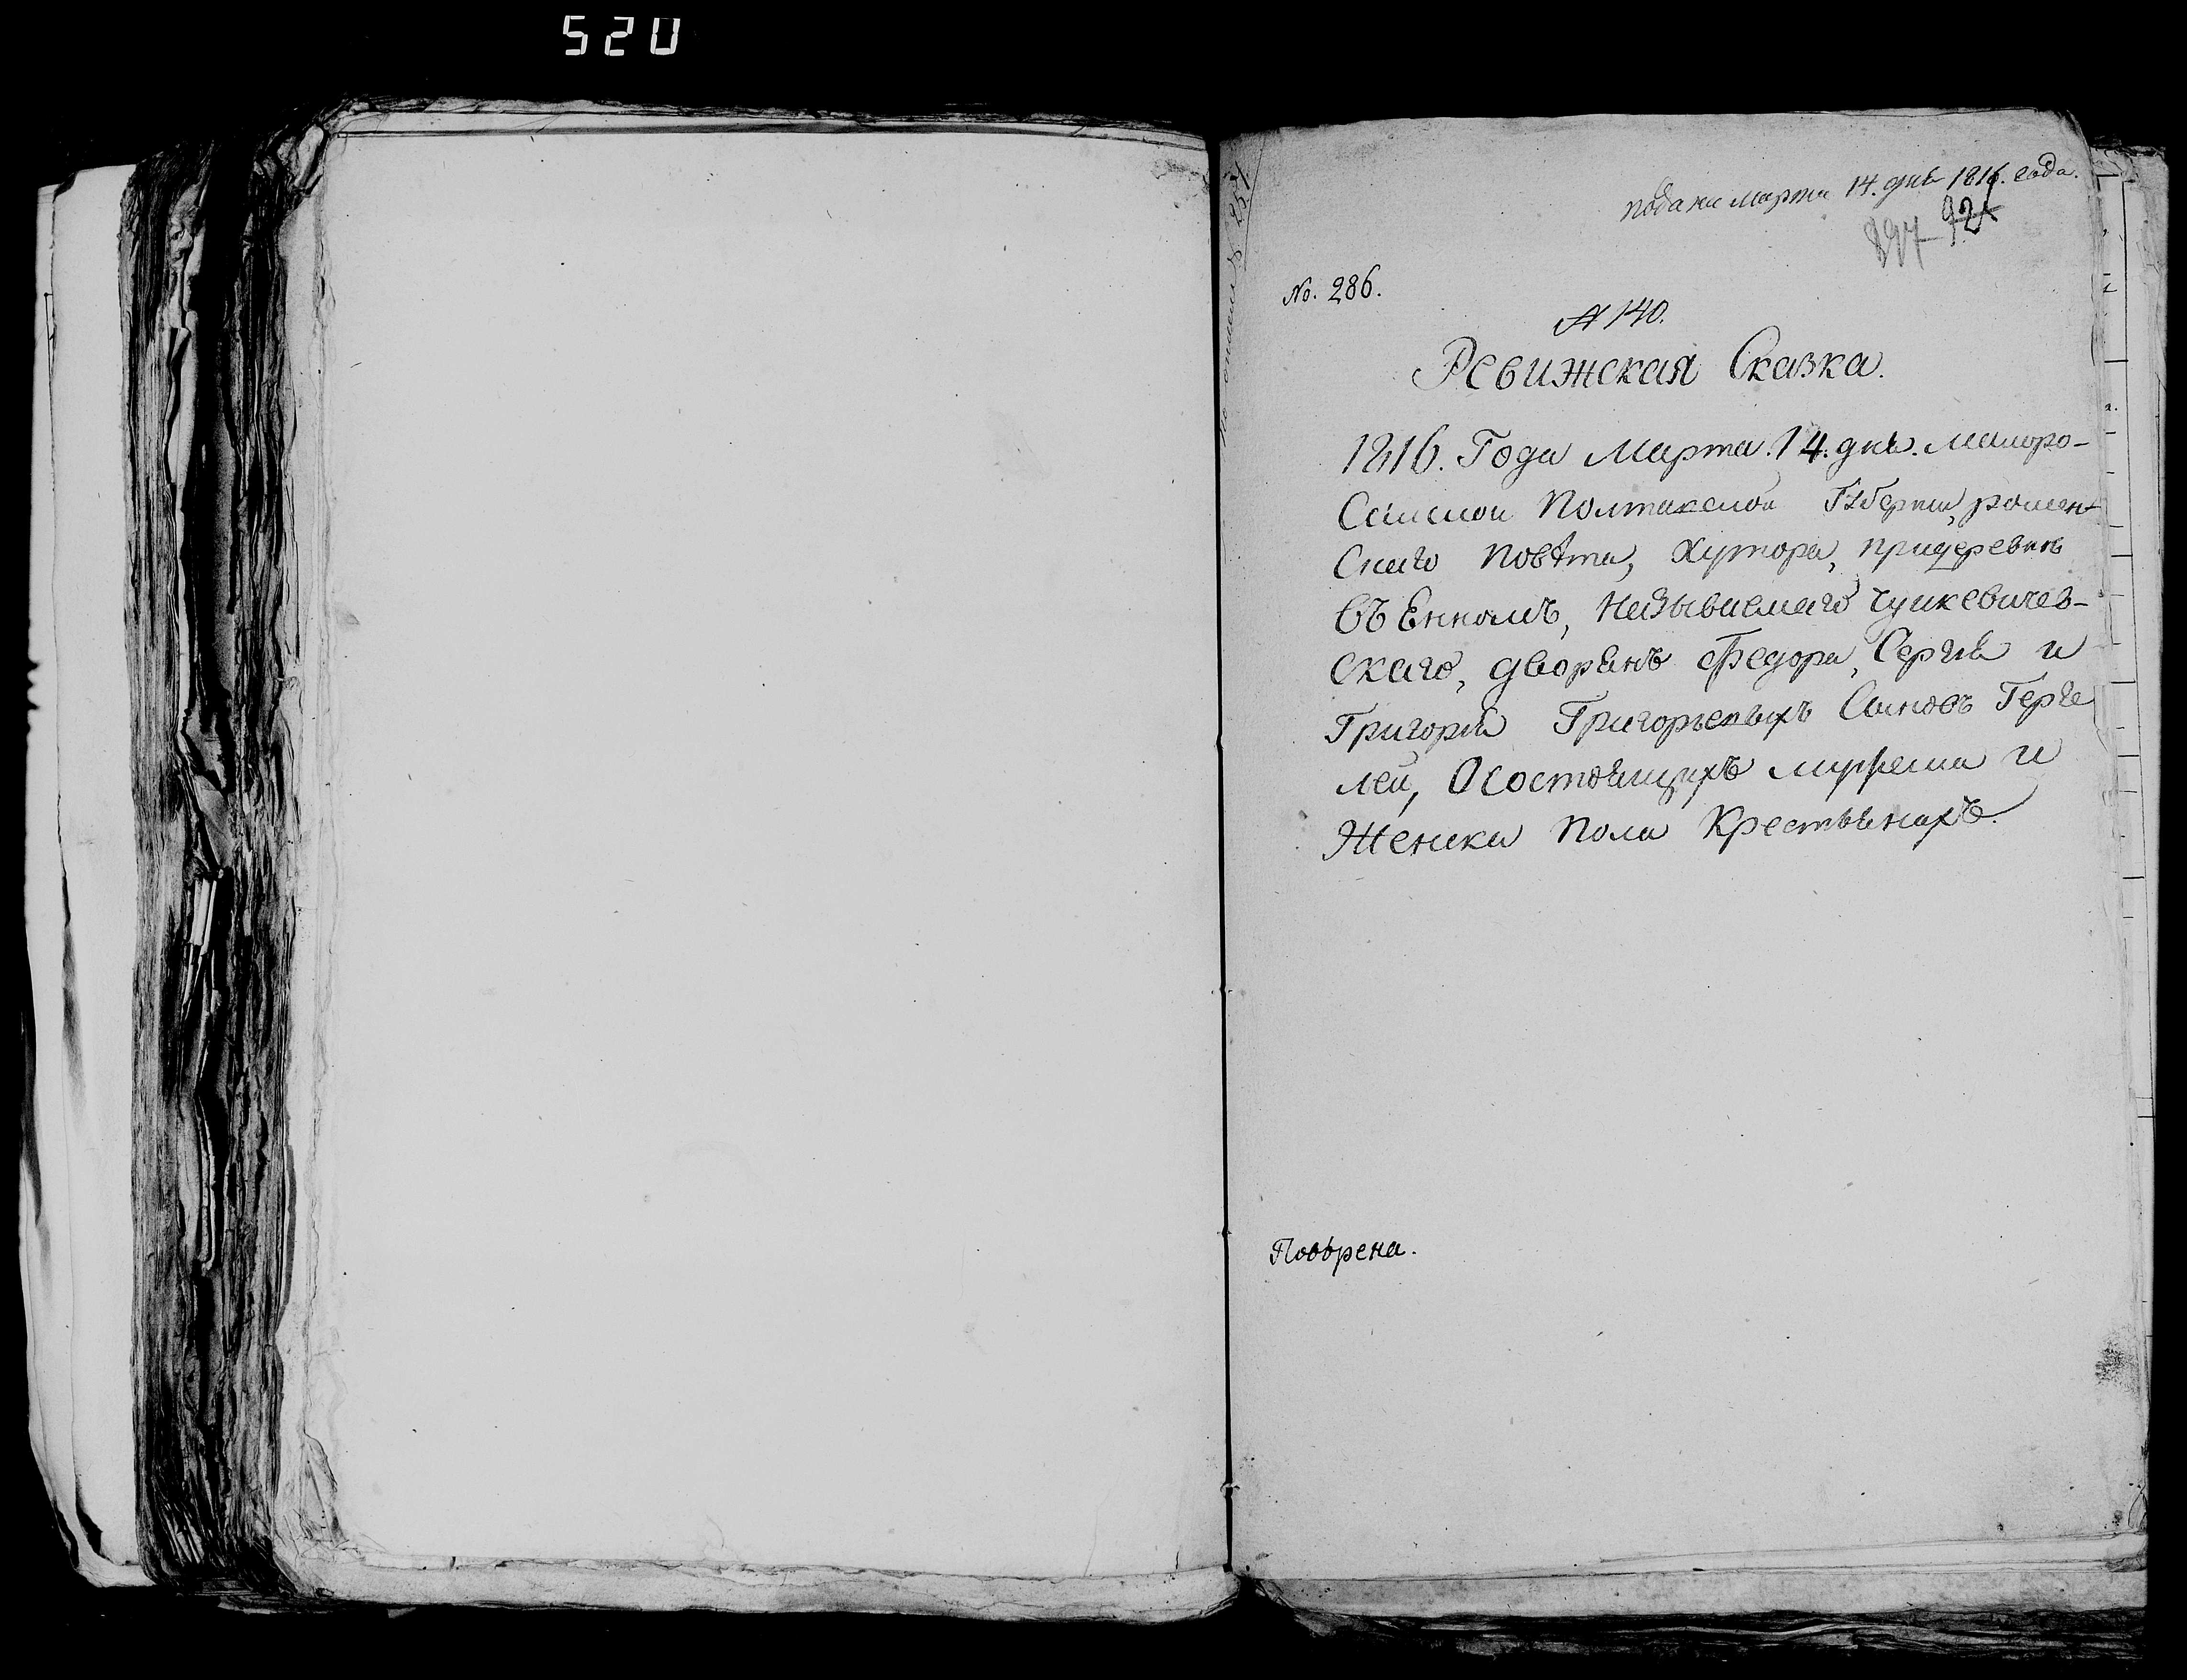 520
подана марта 14. дня 1816. года.
297 921
No. 286.
№ 140.
Ревижская Сказка.
1816. Года Марта. 14. дня. малоро-
Сійской Полтавской Губерніи, ромен-
Скаго повѣта, Хутора, придеревнѣ
Называемаго чушкевичев-
Скаго, дворянъ Федора, Сергія и
Григорія Григорьевыхъ Сыновъ Герце
лей, О состоящихъ мужеска и
Женска пола Крестьянахъ.
Повѣрена.